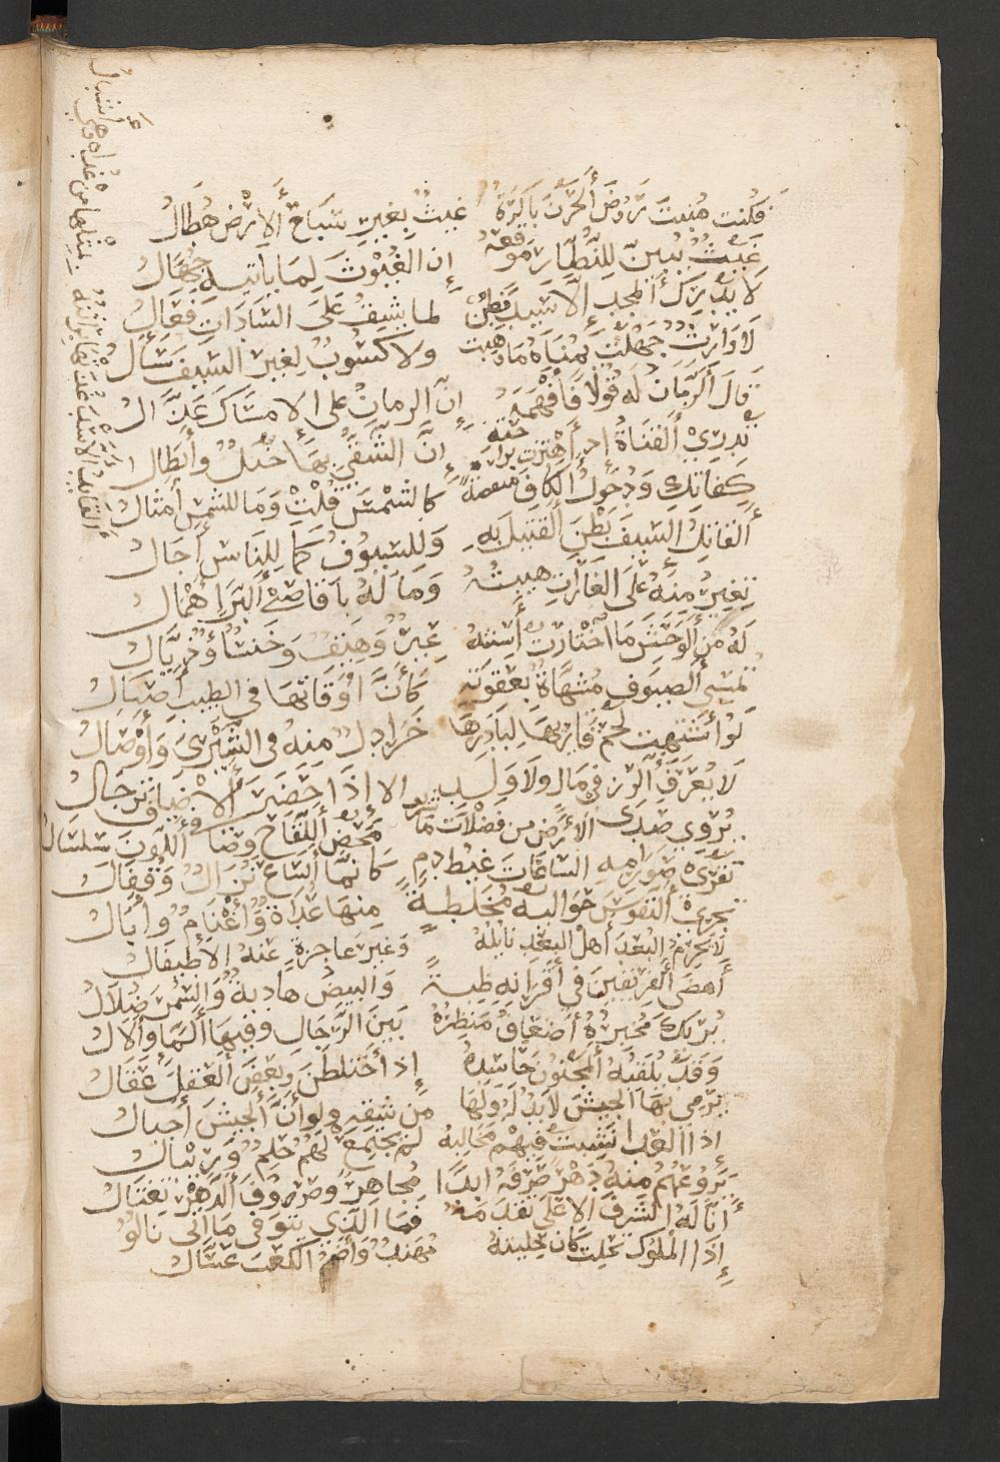 فكنت منبت روض الحزن باكره غيث بغير سباخ الأرض هطال
غيث يبين للنظار موقعه إن الغيوث لما يأتيه جهال
لا يدرك المجد إلا سيد فطن لما يشق على السادات فعال
لا وارث جهلت يمناه ما وهبت ولا كسوب لغير السيف سأال
قال الزمان له قولا فأفهمه إن الزمان على الإمساك عذال
يدري القناة إذا اهتزت براحته إن الشقي بها خيل وأبطال
كفاتك ودخول الكاف منقصة كالشمس قلت وما للشمس أمثال
القائد الأسد غذتها براثنه بمثلها من عداه وهي أشبال
القاتل السيف بطن القتيل به وللسيوف كما للناس آجال
تغير منه على الغارات هيبته وما له بأقاصي البر إهمال
له من الوحش ما اختارت أسنته عير وهيق وخنساء وذيال
تمسي الضيوف مشهاة بعقوته كأن أوقاتها في الطيب آصال
لو اشتهت لحم قاريها لبادرها خرادل منه في الشيزى وأوصال
لا يعرف الرزء في مال ولا ولد إلا إذا حفز الأضياف ترحال
يروي صدى الأرض من فضلات ما شربوا محض اللقاح وصافي اللون سلسال
تقري صوارمه الساعات عبط دم كأنما الساع نزال وقفال
تجري النفوس حواليه مخلطة منها عداة وأغنام وآبال
لا يحرم البعد أهل البعد نايله وغير عاجزة عنه الأطيفال
أمضى الفريقين في أقرانه ظبة والبيض هادية والسمر ضلال
يريك مخبره أضعاف منظره بين الرجال وفيها الما والآل
وقد يلقبه المجنون حاسده إذا اختلطن وبعض العقل عقال
يرمي بها الجيش لا بد له ولها من شقه ولو أن الجيش أجبال
إذا العدا نشبت فيهم مخالبه لم يجتمع لهم حلم وريبال
يروعهم منه دهر صرفه أبدا مجاهر وصروف الدهر تغتال
أناله الشرف الأعلى تقدمه فما الذي بتوقي ما أتى نالوا
إذا الملوك تحلت كان حليته مهند وأصم الكعب عسال